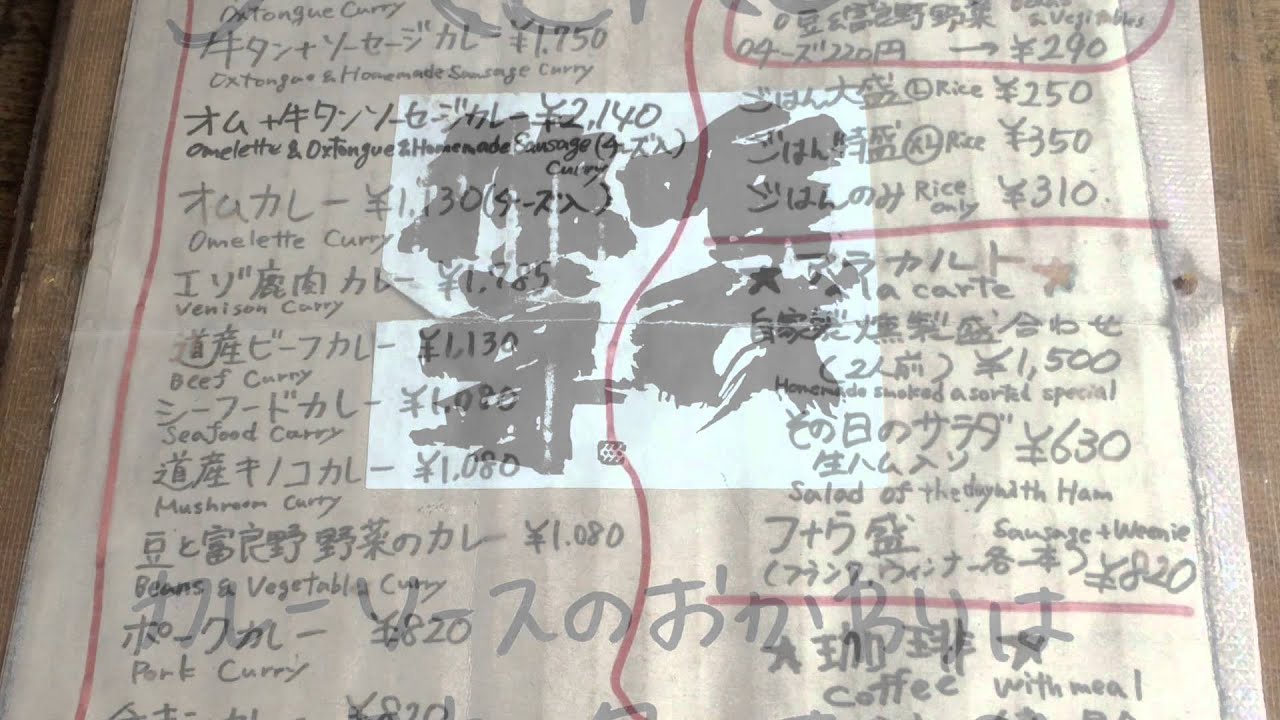 Oxtongue Curry
牛タン+ソーセージカレー ¥1,750
Oxtongue & Homemade Sausage Curry
オム+牛タンソーセージカレー ¥2,140
Omelette & Oxtongue & Homemade Sausage (チーズ入)
Curry
オムカレー ¥1,130 (チーズ入)
Omelette Curry
エゾ鹿肉カレー ¥1,785
Venison Curry
道産ビーフカレー ¥1,130
Beef Curry
シーフードカレー ¥1,080
Seafood Curry
道産キノコカレー ¥1,080
Mushroom Curry
豆と富良野野菜のカレー ¥1.080
Beans & Vegetable Curry
ポークカレー ¥820
Pork Curry
¥820
豆&富良野野菜 Beans & Vegetables
チーズ220円 → ¥290
ごはん大盛 Ⓛ Rice ¥250
ごはん特盛 XL Rice ¥350
ごはんのみ Rice only ¥310.
★アラカルト★
a la carte
自家製燻製盛合わせ
(2人前) ¥1,500
Homemade smoked asorted special
その日のサラダ ¥630
生ハム入り
Salad of the day with Ham
フナウ盛 Sausage + Weenie
(フランク,ウィンナー各一本) ¥820
★珈琲★
coffee with meal
カレーソースのおかわりは